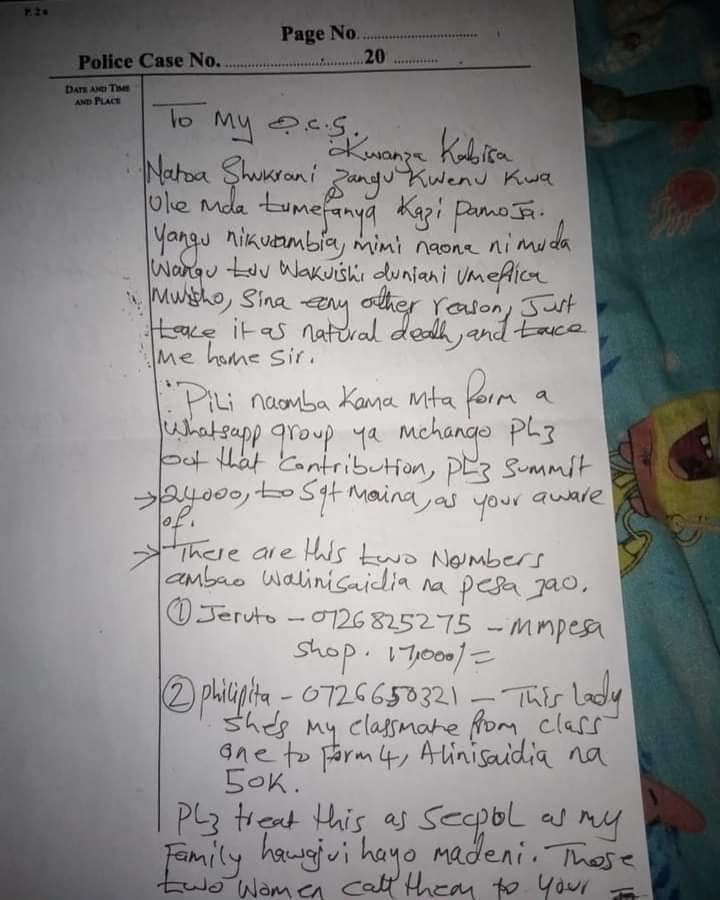 P. 20
Page No. ..............................
Police Case No. ..................................... 20 ............
DATE AND TIME
AND PLACE
To My O.C.S.
Kwanza Kabisa
Natoa Shukrani zangu kwenu kwa
Ule Mda tumefanya Kazi pamoja.
Yangu nikuwambia, mimi naona ni muda
Wangu tuu Wakuishi duniani Umefica
Mwisho, Sina eny other reason, Just
tace it as natural death, and tace
Me home Sir.
Pili naomba Kama Mta form a
Whatsapp group ya Mchango PLz
out that Contribution, PLz Summit
→ 24000, to Sgt Maina, as your aware
of.
→ There are this two Numbers
ambao Walinisaidia na pesa zao.
① Jeruto - 0726825275 - Mmpesa
Shop. 17,000/=
② philipita - 0726650321 - This lady
She's My classmate from class
one to Form 4, Alinisaidia na
50K.
PLz treat this as Secpol as my
Family hawajui hayo madeni. Those
two Women call them to your